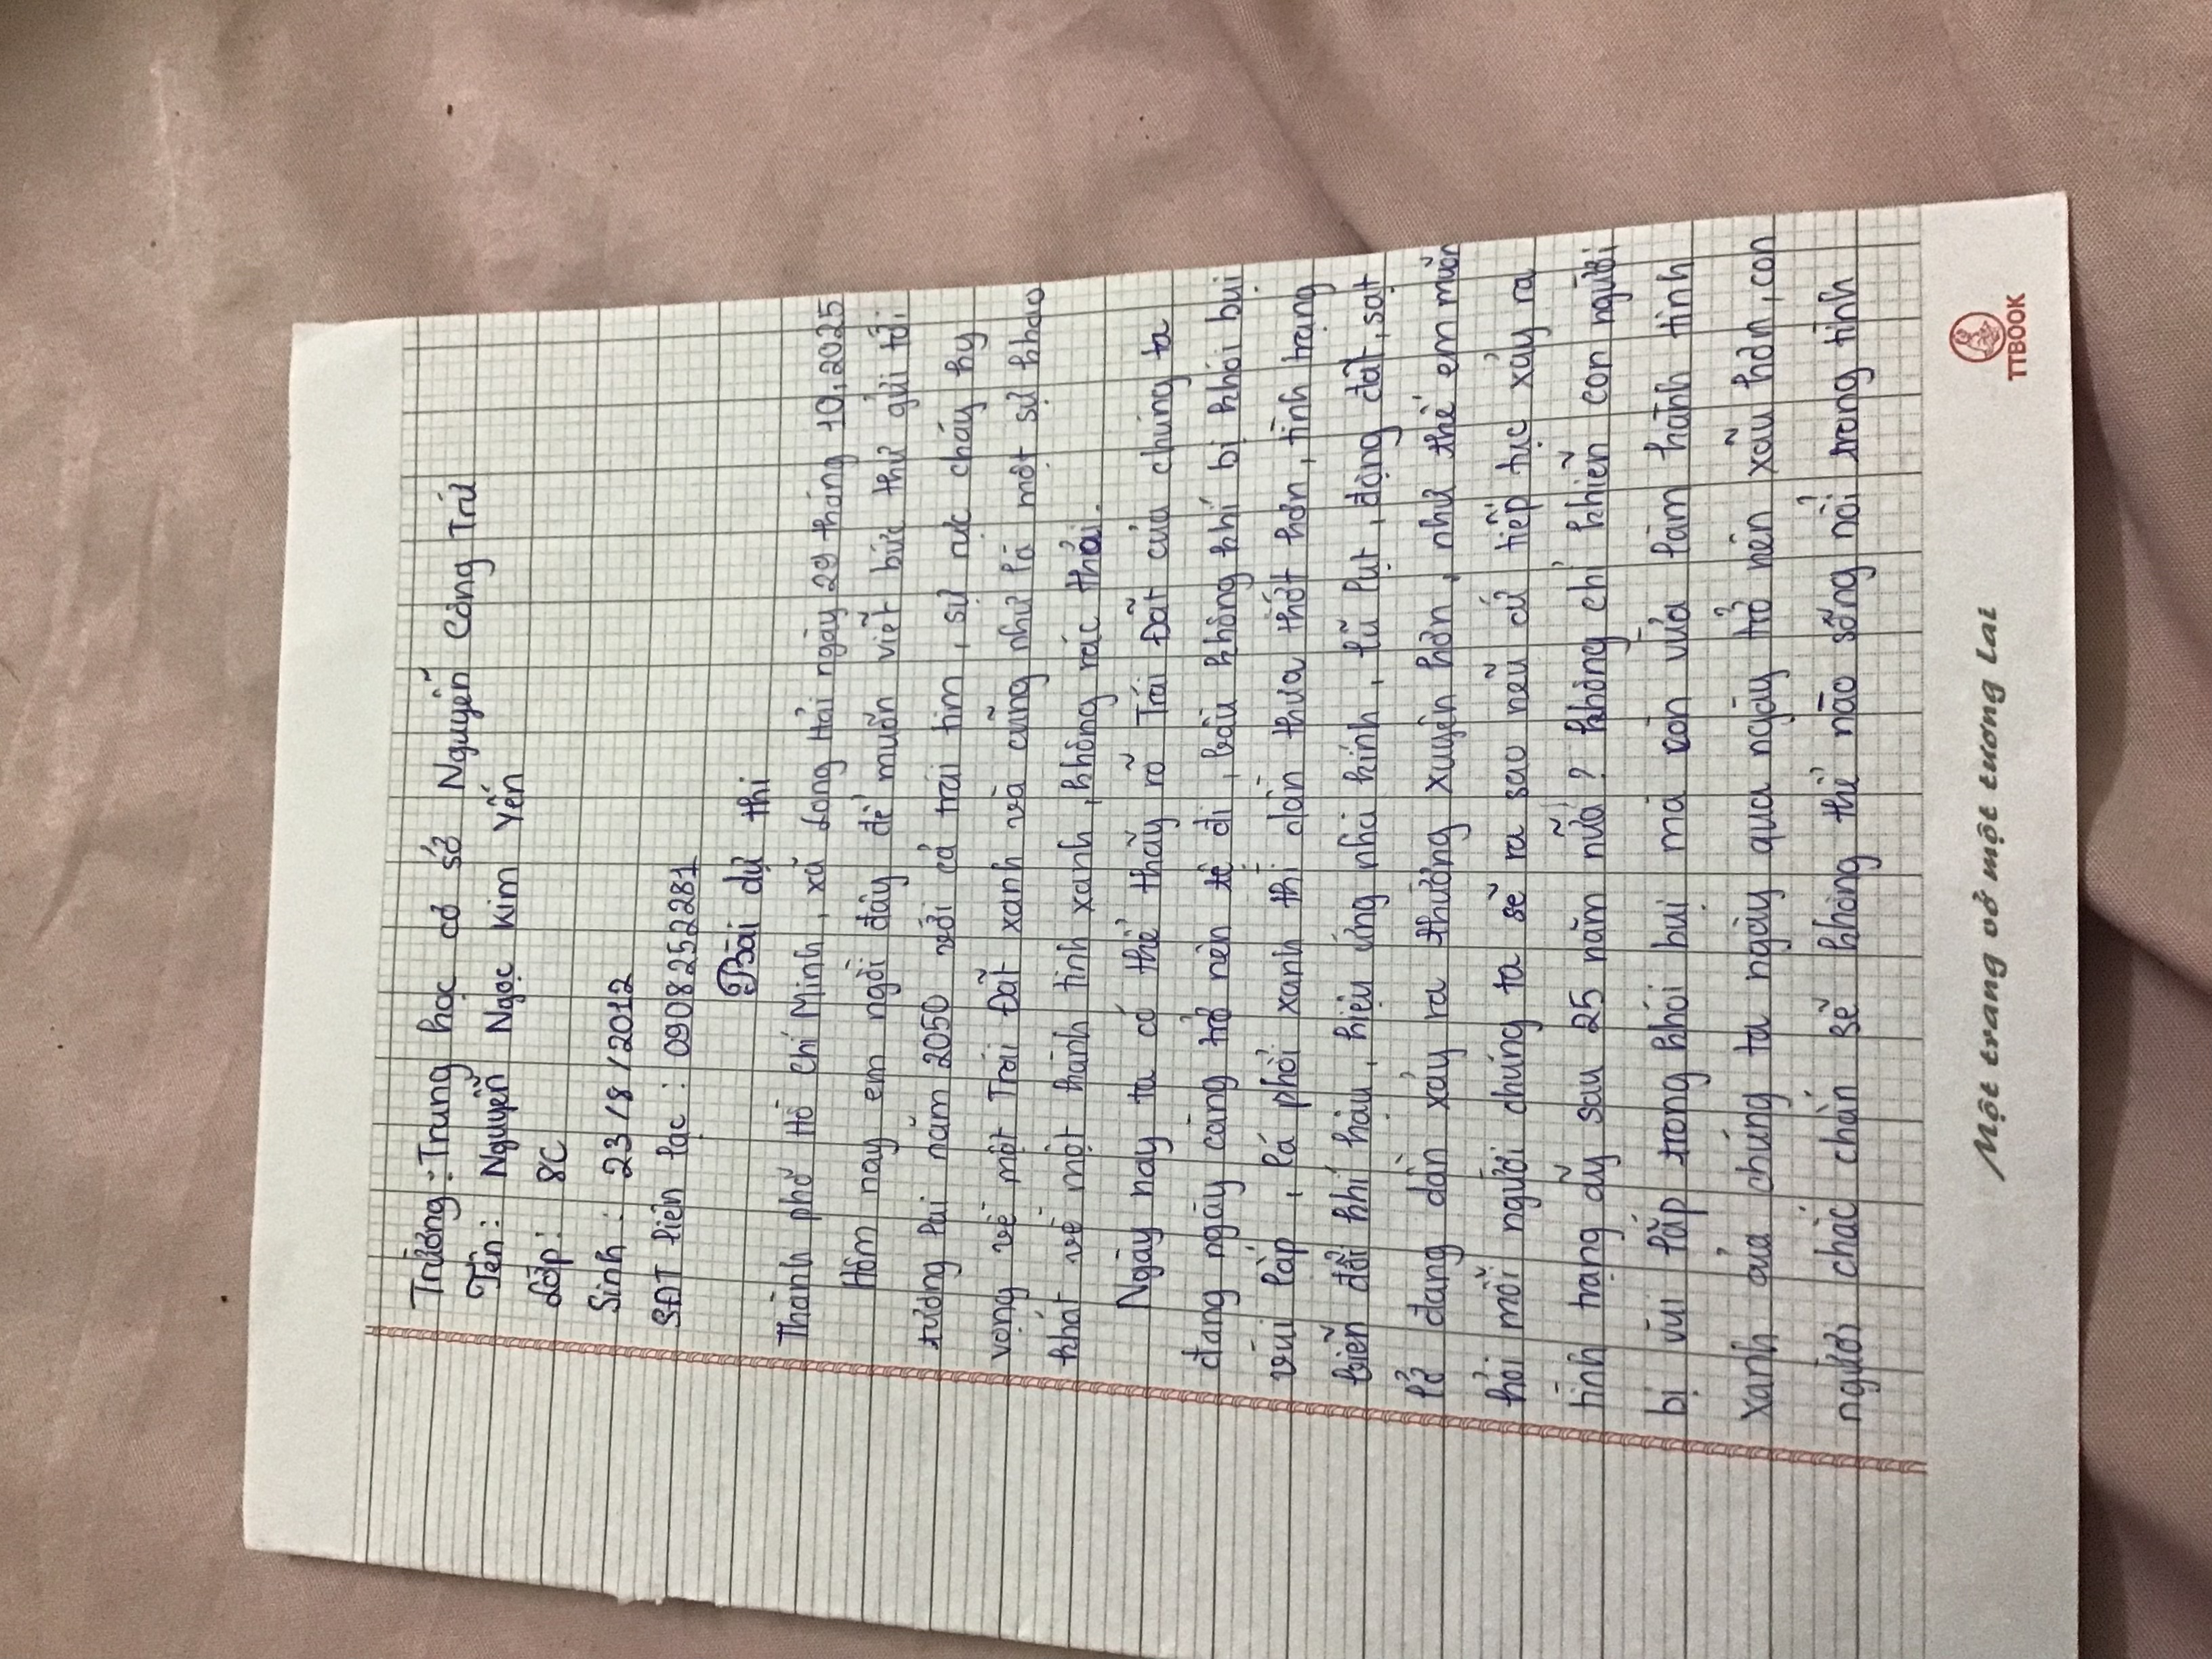 Trường: Trung học cơ sở Nguyễn Công Trứ
Tên: Nguyễn Ngọc Kim Yến
Lớp: 8C
Sinh: 23/8/2012
SĐT liên lạc: 0908252281
Bài dự thi
Thành phố Hồ Chí Minh, xã Long Hải ngày 29 tháng 10, 2025
Hôm nay em ngồi đây để muốn viết bức thư gửi tới
tương lai năm 2050 với cả trái tim, sự rực cháy hy
vọng về một Trái Đất xanh và cũng như là một sự khao
khát về một hành tinh xanh, không rác thải.
Ngày nay ta có thể thấy rõ Trái Đất của chúng ta
đang ngày càng trở nên tệ đi, bầu không khí bị khói bụi
vùi lấp, lá phổi xanh thì dần thưa thớt hơn, tình trạng
biến đổi khí hậu, hiệu ứng nhà kính, lũ lụt, động đất, sạt
lở đang dần xảy ra thường xuyên hơn, như thế em muốn
hỏi mỗi người chúng ta sẽ ra sao nếu cứ tiếp tục xảy ra
tình trạng ấy sau 25 năm nữa? Không chỉ khiến con người
bị vùi lấp trong khói bụi mà còn vừa làm hành tinh
xanh của chúng ta ngày qua ngày trở nên xấu hơn, con
người chắc chắn sẽ không thể nào sống nổi trong tình
Một trang vở một tương lai
TTBOOK